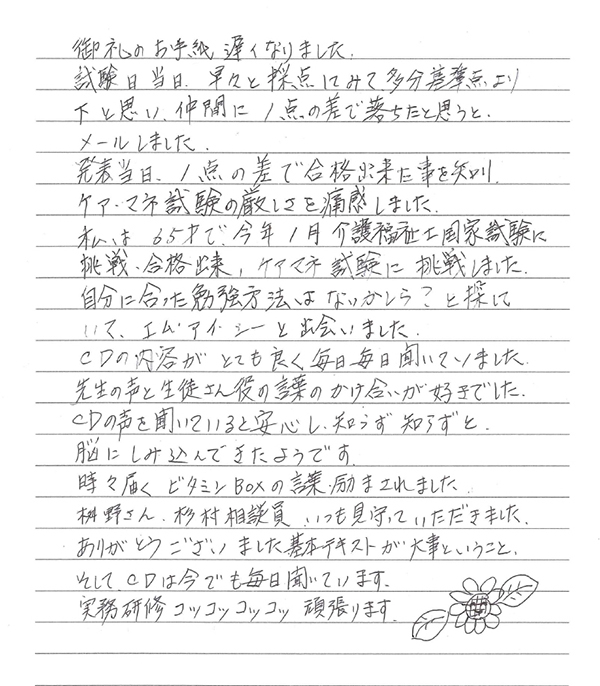 御礼のお手紙遅くなりました.
試験日当日.早々と採点にみて多分基準点より
下と思い.仲間に1点の差で落ちたと思うと.
メールしました.
発表当日、1点の差で合格出来た事を知り.
ケアマネ試験の厳しさを痛感しました.
私は65才で.今年1月介護福祉士国家試験に
挑戦.合格出来,ケアマネ試験に挑戦しました.
自分に合った勉強方法はないかしら?と探して
いて、エム・アイ・シーと出会いました.
CDの内容がとても良く毎日毎日聞いていました.
先生の声と生徒さん役の言葉のかけ合いが好きでした.
CDの声を聞いていると安心し、知らず知らずと.
脳にしみ込んできたようです.
時々届くビタミンBOXの言葉.励まされました
桝野さん、杉村相談員いつも見守っていただきました.
ありがとうございました基本テキストが大事ということ.
そしてCDは今でも毎日聞いています.
実務研修コツコツコツコツ頑張ります.